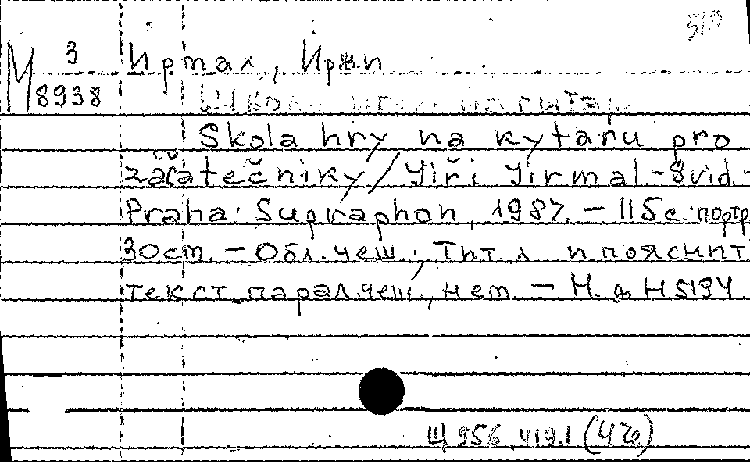 510
И 3 Ирмал, Иржи
8938 Школа игры на гитаре
Skola hry na kytaru pro
začátečniky / Yiři Yirmal - 8vid -
Praha: Supraphon, 1987. - 115 с. портр
30cm. - Обл. чеш.; Тит л и пояснит
текст парал. чеш, нем. - Н. д. H 5194
Щ 956.419.1 (4Че)